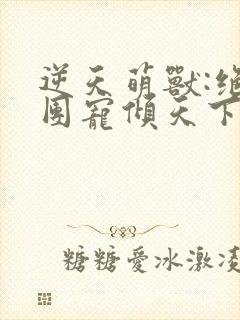 逆天萌獸:絕
團寵傾天下
糖糖愛冰激凌